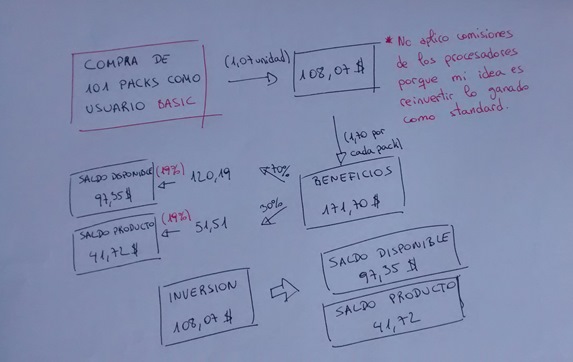 COMPRA DE
101 PACKS COMO
USUARIO BASIC
(1,07 unidad)
108,07 $
* No aplico comisiones
de los procesadores
porque mi idea es
reinvertir lo ganado
como standard.
(1,70 por
cada pack)
BENEFICIOS
171,70 $
70%
30%
120,19
51,51
(19%)
(19%)
SALDO DISPONIBLE
97,35 $
SALDO PRODUCTO
41,72 $
INVERSION
108,07 $
SALDO DISPONIBLE
97,35 $
SALDO PRODUCTO
41,72